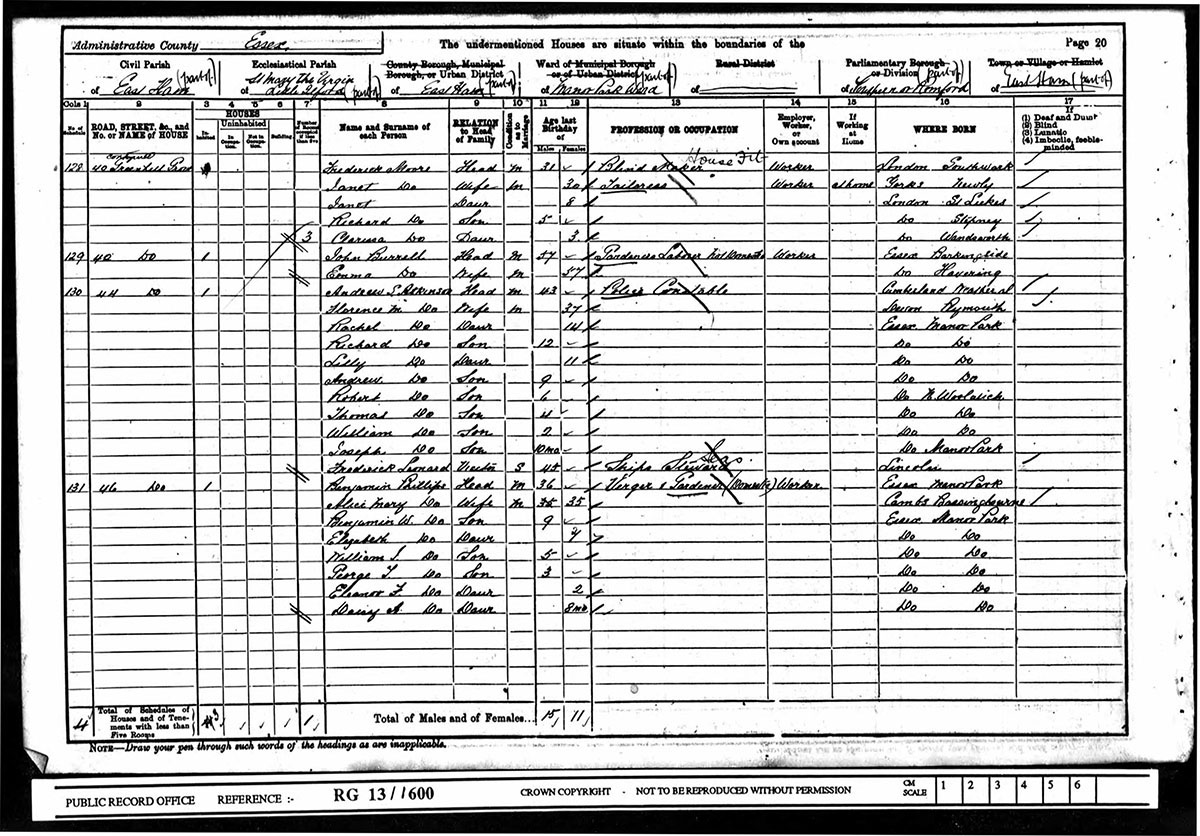 Administrative County Essex
The undermentioned Houses are situate within the boundaries of the
Page 20
Civil Parish
of East Ham (part of)
Ecclesiastical Parish
of St Mary the Virgin
Little Ilford (part of)
County Borough, Municipal
Borough, or Urban District
of East Ham (part of)
Ward of Municipal Borough
or of Urban District (part of)
of Manor Park Ward
Rural District
of
Parliamentary Borough
or Division (part of)
of Romford
Town or Village or Hamlet
of East Ham (part of)
Cols 1 2 3 4 5 6 7 8 9 10 11 12 13 14 15 16 17
No. of Schedule
ROAD, STREET, &c., and
No. or NAME of HOUSE
HOUSES
Inhabited
Uninhabited
In Occupation.
Not in Occupation.
Building
Number of Rooms occupied if less than five
Name and Surname of
each Person
RELATION
to Head
of Family
Condition as to Marriage
Age last
Birthday
of
Males Females
PROFESSION OR OCCUPATION
Employer,
Worker,
or
Own account
If
Working
at
Home
WHERE BORN
If
(1) Deaf and Dumb
(2) Blind
(3) Lunatic
(4) Imbecile, feeble-
minded
House Fit
128 40 Frederick Moore Head M 31 Blind Maker Worker London Southwark
Janet Do Wife M 30 Tailoress Worker at home Yorks
Janet Daur 8 London St Lukes
Richard Do Son 5 Do Stepney
3 Clarissa Do Daur 3 Do Wandsworth
129 42 Do 1 John Burrell Head M 57 Gardeners Laborer Not Domestic Worker Essex Barkingside
Emma Do Wife M 57 Do Havering
130 44 Do 1 Andrew S. Atkinson Head M 43 Police Constable Cumberland Wetheral
Florence M. Do Wife M 37 Devon Plymouth
Rachel Do Daur 14 Essex Manor Park
Richard Do Son 12 Do Do
Lilly Do Daur 11 Do Do
Andrew Do Son 9 Do Do
Robert Do Son 6 Do N. Woolwich
Thomas Do Son 4 Do Do
William Do Son 2 Do Do
Joseph Do Son 10 mo Do Manor Park
Frederick Leonard Visitor S 45 Ships Steward Lincoln
131 46 Do 1 Benjamin Phillips Head M 36 Verger & Gardener (Domestic) Worker Essex Manor Park
Alice Mary Do Wife M 35 35 Cambs Bassingbourne
Benjamin W. Do Son 9 Essex Manor Park
Elizabeth Do Daur 7 Do Do
William J. Do Son 5 Do Do
George T. Do Son 3 Do Do
Eleanor F. Do Daur 2 Do Do
Daisy A. Do Daur 8 mo Do Do
4
Total of Schedules of
Houses and of Tene-
ments with less than
Five Rooms
3 1
Total of Males and of Females... 15 11
NOTE—Draw your pen through such words of the headings as are inapplicable.
PUBLIC RECORD OFFICE REFERENCE :- RG 13/1600 CROWN COPYRIGHT - NOT TO BE REPRODUCED WITHOUT PERMISSION CM SCALE 1 2 3 4 5 6